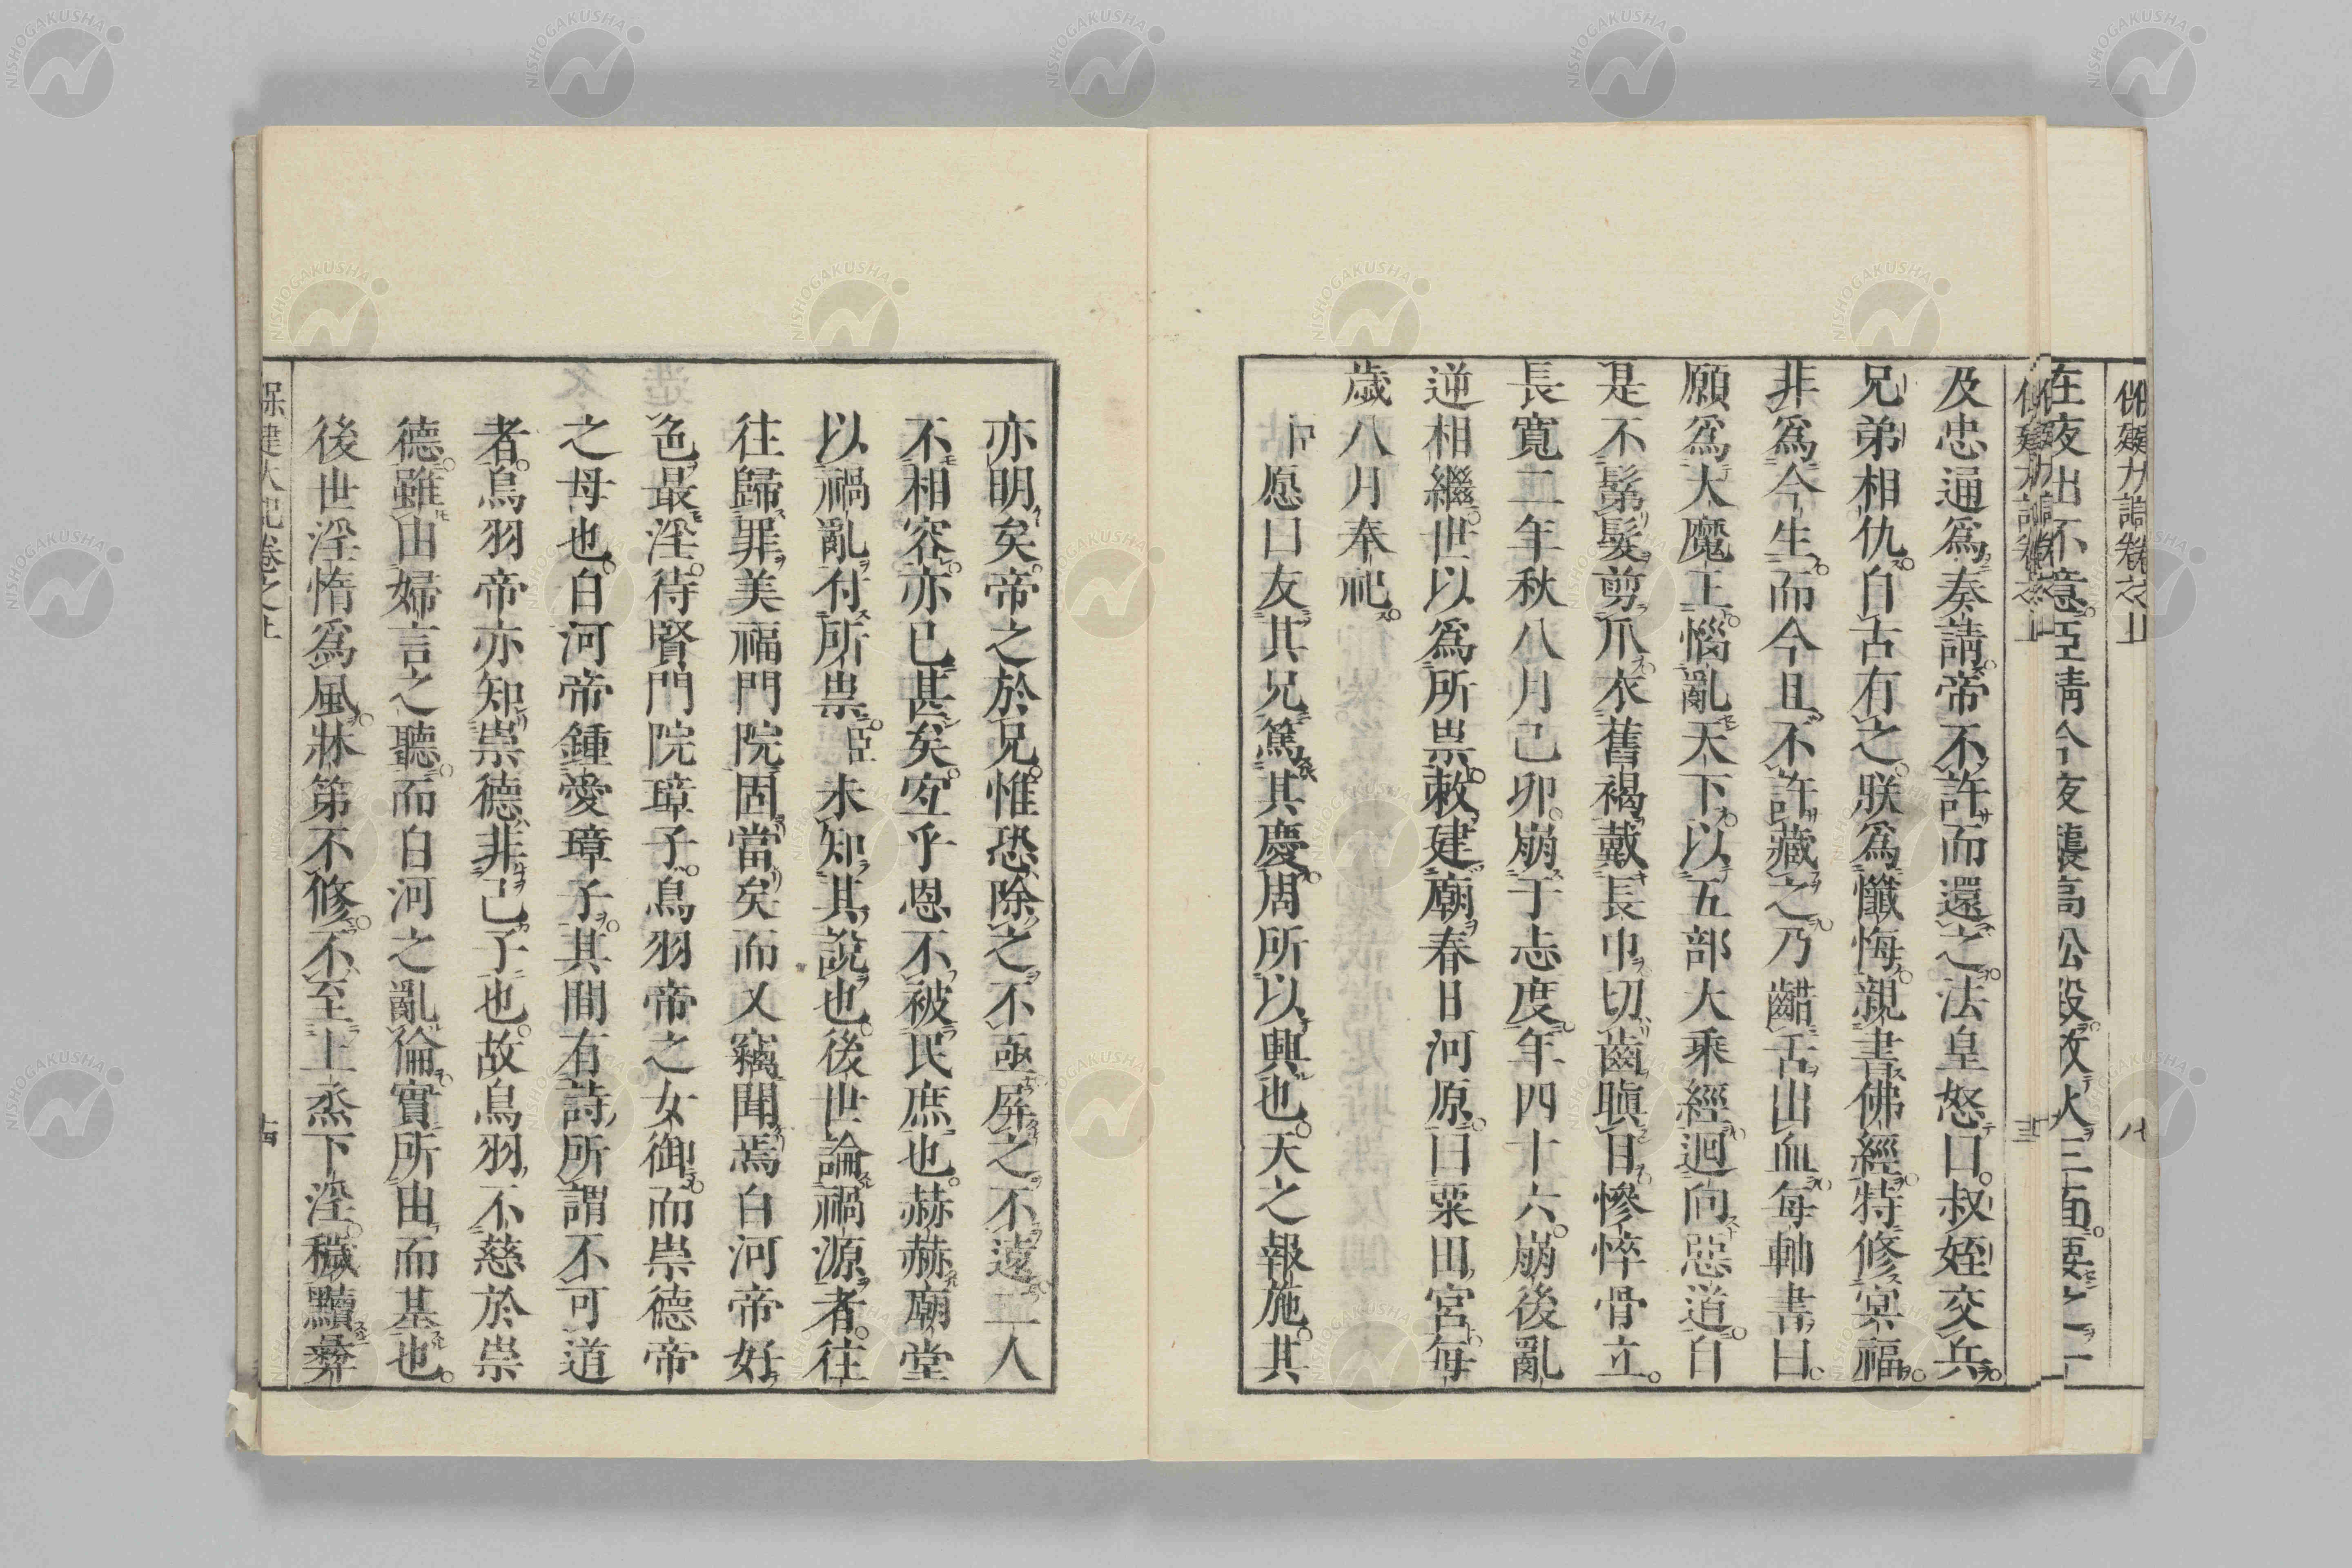 保建大記卷之上
八
在夜出不意臣請今夜襲高松殿放火三面要之一
及忠通爲奏請帝不許而還之法皇怒曰叔姪交兵
兄弟相仇自古有之朕爲懺悔親書佛經特修冥福
非爲今生而今且不許藏之乃齰舌出血每軸書曰
願爲大魔王惱亂天下以五部大乘經迴向惡道自
是不鬀髮剪爪衣舊褐戴長巾切齒瞋目慘悴骨立
長寬二年秋八月己卯崩于志度年四十六崩後亂
逆相繼世以爲所祟敕建廟春日河原曰粟田宮每
歲八月奉祀
臣愿曰友其兄篤其慶周所以興也天之報施其
亦明矣帝之於兄惟恐除之不亟屏之不遠一人
不相容亦已甚矣宐乎恩不被民庶也赫赫廟堂
以禍亂付所祟臣未知其說也後世論禍源者往
往歸罪美福門院固當矣而又竊聞焉白河帝好
色最淫待賢門院璋子鳥羽帝之女御而崇德帝
之母也白河帝鍾愛璋子其間有詩所謂不可道
者鳥羽帝亦知崇德非己子也故鳥羽不慈於崇
德雖由婦言之聽而白河之亂倫實所由而基也
後世淫惰爲風牀第不修不至上烝下淫穢黷彝
保建大記卷之上
十四